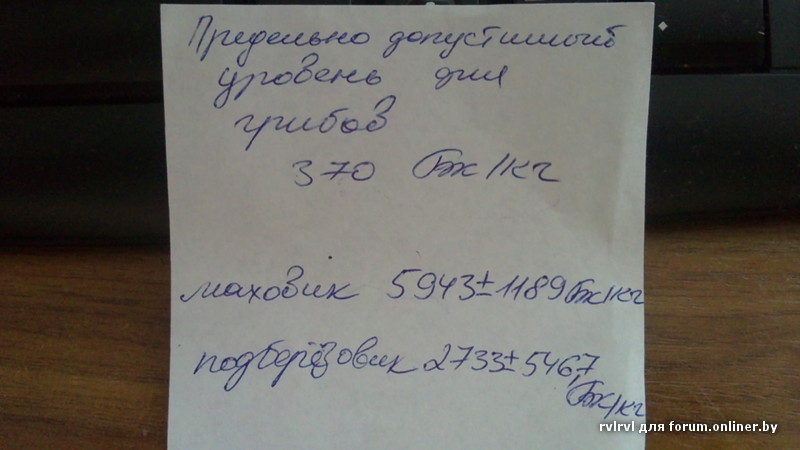 Предельно допустимый
уровень для
грибов
370 Бк/кг
маховик 5943±1189 Бк/кг
подберёзовик 2733±546,7
Бк/кг
rvlrvl для forum.onliner.by